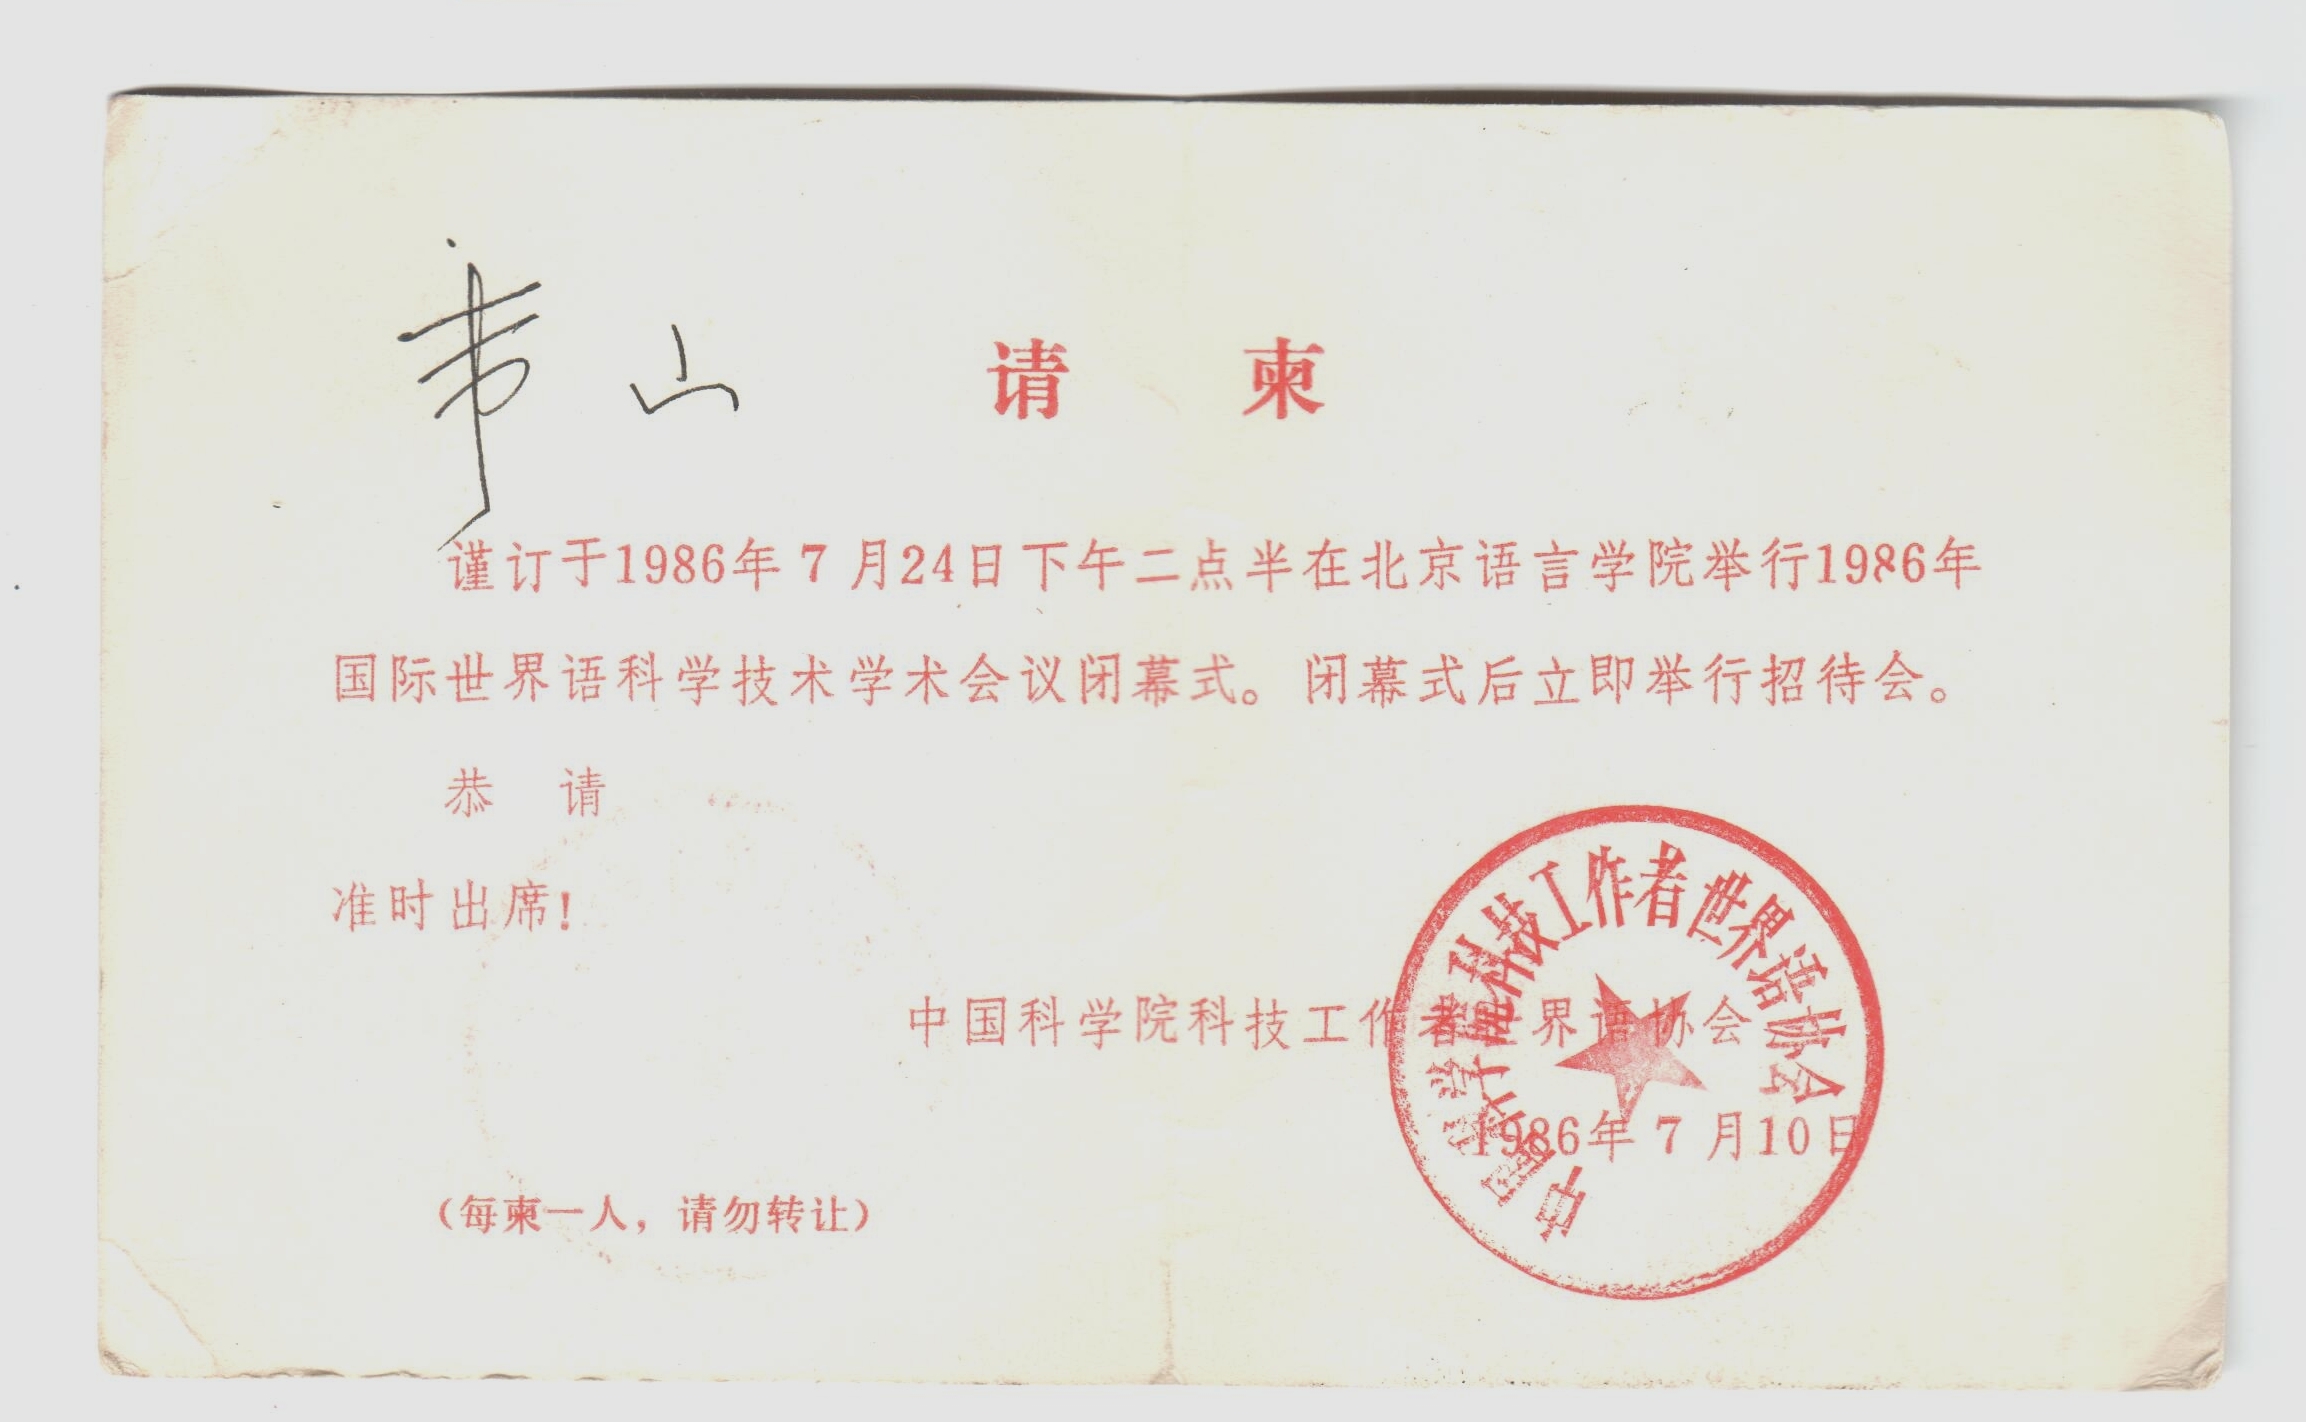 韦山
请柬
谨订于1986年7月24日下午二点半在北京语言学院举行1986年
国际世界语科学技术学术会议闭幕式。闭幕式后立即举行招待会。
恭请
准时出席!
中国科学院科技工作者世界语协会
1986年7月10日
(每柬一人，请勿转让)
中国科学院科技工作者世界语协会